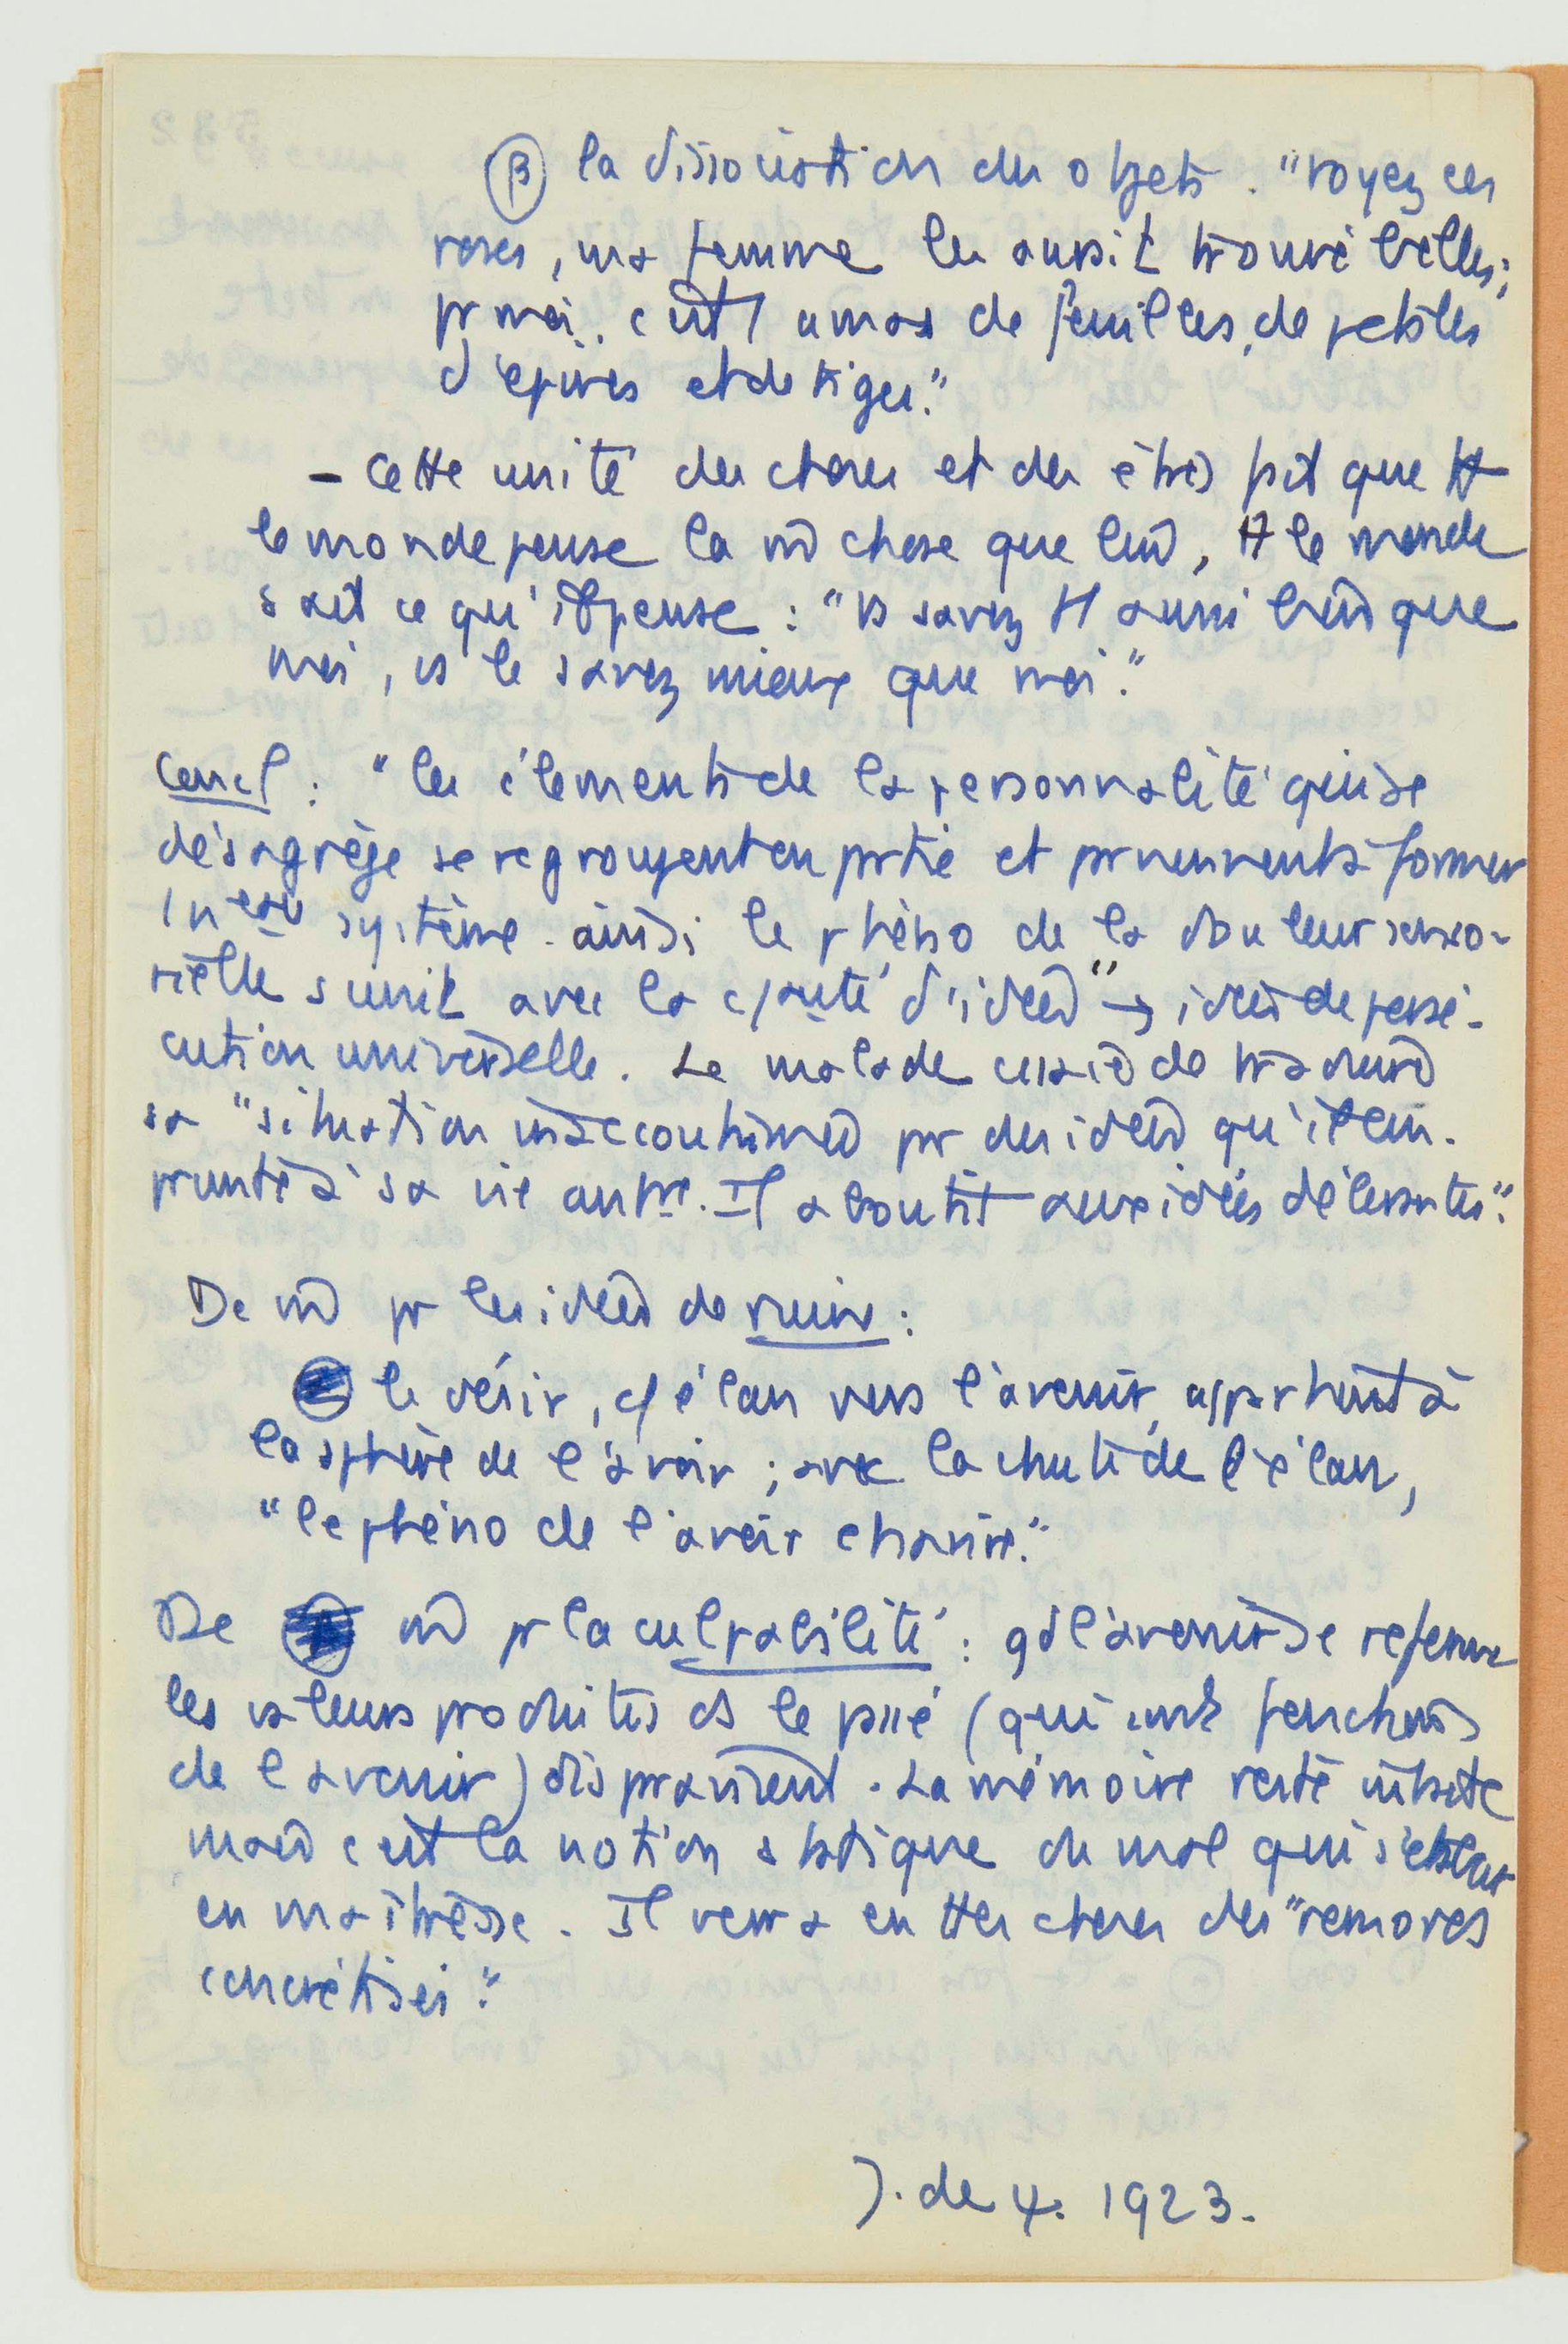 β la dissociation des objets. "voyez ces
roses, ma femme les aurait trouvé belles;
pr moi, c'est 1 amas de feuilles, de pétales
d'épines et de tiges."
- Cette unité des choses et des êtres fait que tt
le monde pense la m̂ chose que lui, tt le monde
sait ce qu'il pense : "vs savez tt aussi bien que
moi, vs le savez mieux que moi."
Concl : "les éléments de la personnalité qui se
désagrège se regroupent en partie et parviennent à former
1 nveau système. ainsi le phéno de la douleur senso-
rielle s'unit avec la c/auté d'idées" → idées de persé-
cution universelle. Le malade essaie de traduire
sa "situation inaccoutumée par des idées qu'il em-
prunte à sa vie antre. Il aboutit aux idées délirantes".
De m̂ pr les idées de ruine :
le désir, c/ élan vers l'avenir, appartient à
la sphère de l'avoir ; avec la chute de l'élan,
"le phéno de l'avoir chavire."
De m̂ pr la culpabilité : qd l'avenir se referme
les valeurs produites ds le passé (qui sont fonctions
de l'avenir) disparaissent. La mémoire reste intacte
mais c'est la notion statique du mal qui s'établit
en maîtresse. Il verra en ttes choses des "remords
concrétisés".
J. de ψ. 1923.